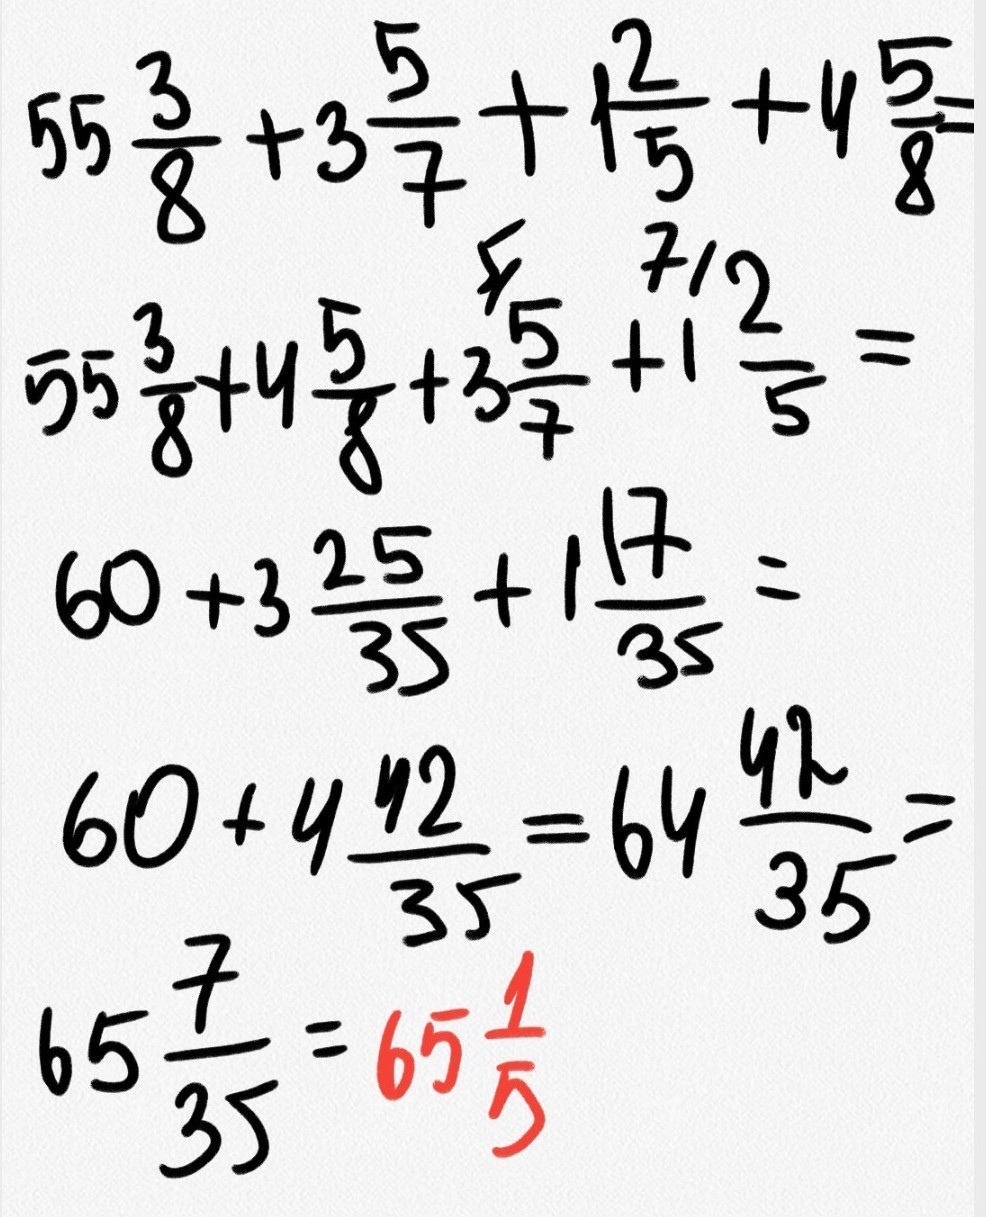 55 3/8 + 3 5/7 + 1 2/5 + 4 5/8 =
55 3/8 + 4 5/8 + 3 5/7 + 1 7/ 2/5 =
60 + 3 25/35 + 1 17/35 =
60 + 4 42/35 = 64 42/35 =
65 7/35 = 65 1/5